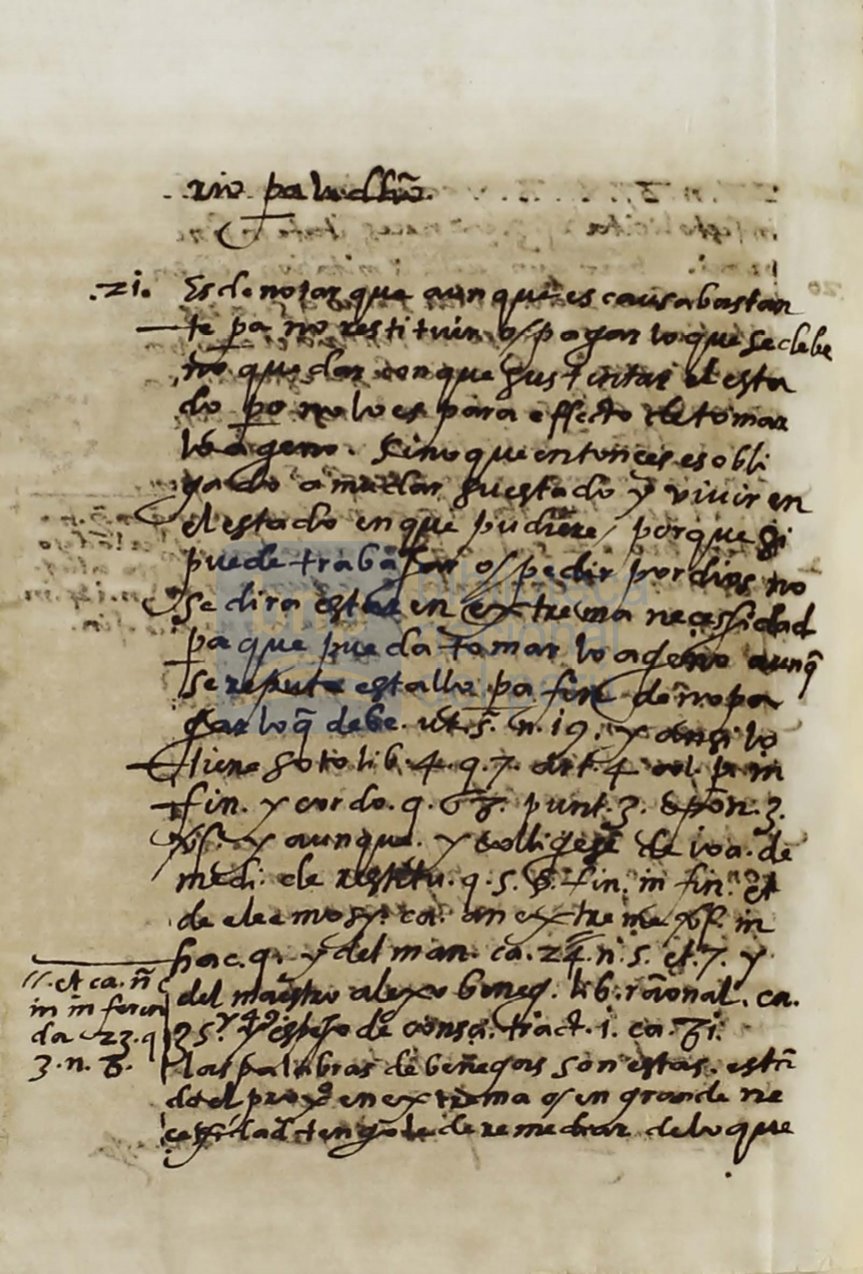 rio pa lo dho.
.21. Es de notar que aunque es causa bastan
te pa no restituir o pagar lo que se debe
no quedar con que sustentar el esta
do po no lo es para effecto de tomar
lo ageno. Sino que entonces es obli
gado a mudar su estado y vivir en
el estado en que pudiere, porque si
puede trabajar o pedir por dios no
se dira estar en extrema necessidad
pa que pueda tomar lo ageno aunq̃
se repute estallo pa fin de no pa
gar lo q̃ debe. ut. s. n. 19. y ansi lo
tiene soto lib. 4. q. 7. art. 4 col. p. in
fin. y cordo. q. punt. 3. 3.
y aunque. y colligese de ioa. de
medi. de restitu. q. 5. fin. in fin. et
de eleemosy. ca. an extreme in
hac. q. y del man. ca. 24. n. 5. et. 7. y
del maestro alexo beneg. lib. raõnal. ca.
35. y espejo de consa. tract. 1. ca.
las palabras de beñegas son estas. está
do el proxº en extrema o en grande ne
cessidad tengole de remediar de lo que
//. et ca. ñ
in inferen
da 23. q
3. n. 6.